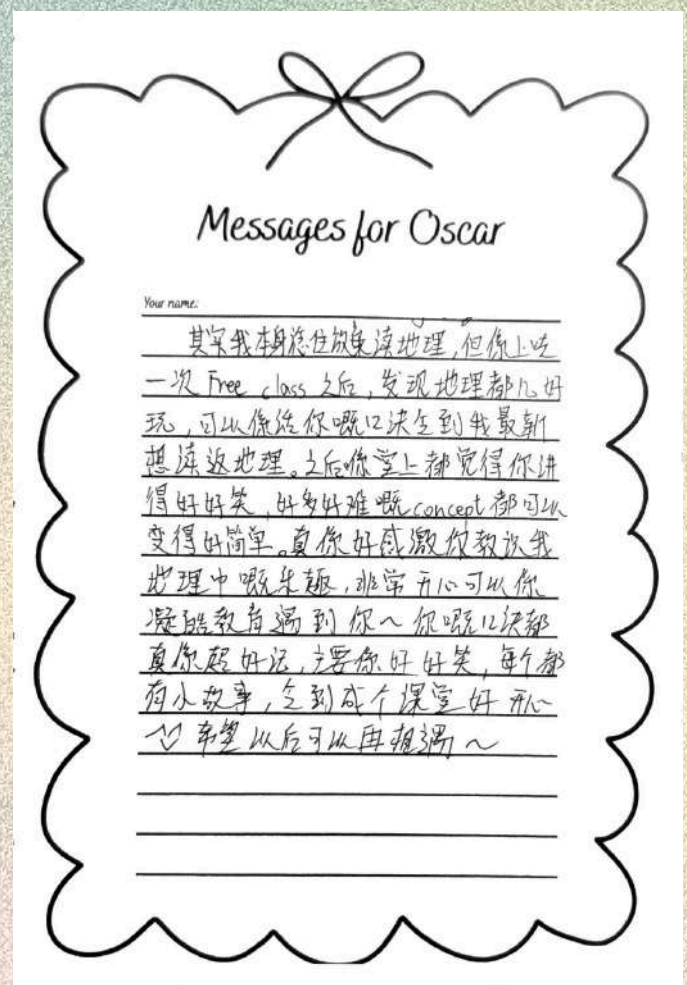 Messages for Oscar
Your name:
其实我本身谂住放弃读地理,但系上咗
一次 Free class 之后,发现地理都几好
玩,可以系话你嘅口诀令到我最新
想读返地理。之后喺堂上都觉得你讲
得好好笑,好多好难嘅concept都可以
变得好简单。真係好感激你教识我
地理中嘅乐趣,非常开心可以係
凝皓教育遇到你~你嘅口诀都
真係超好记,主要係好好笑,每个都
有小故事,令到成个课堂好开心
希望以后可以再相遇~